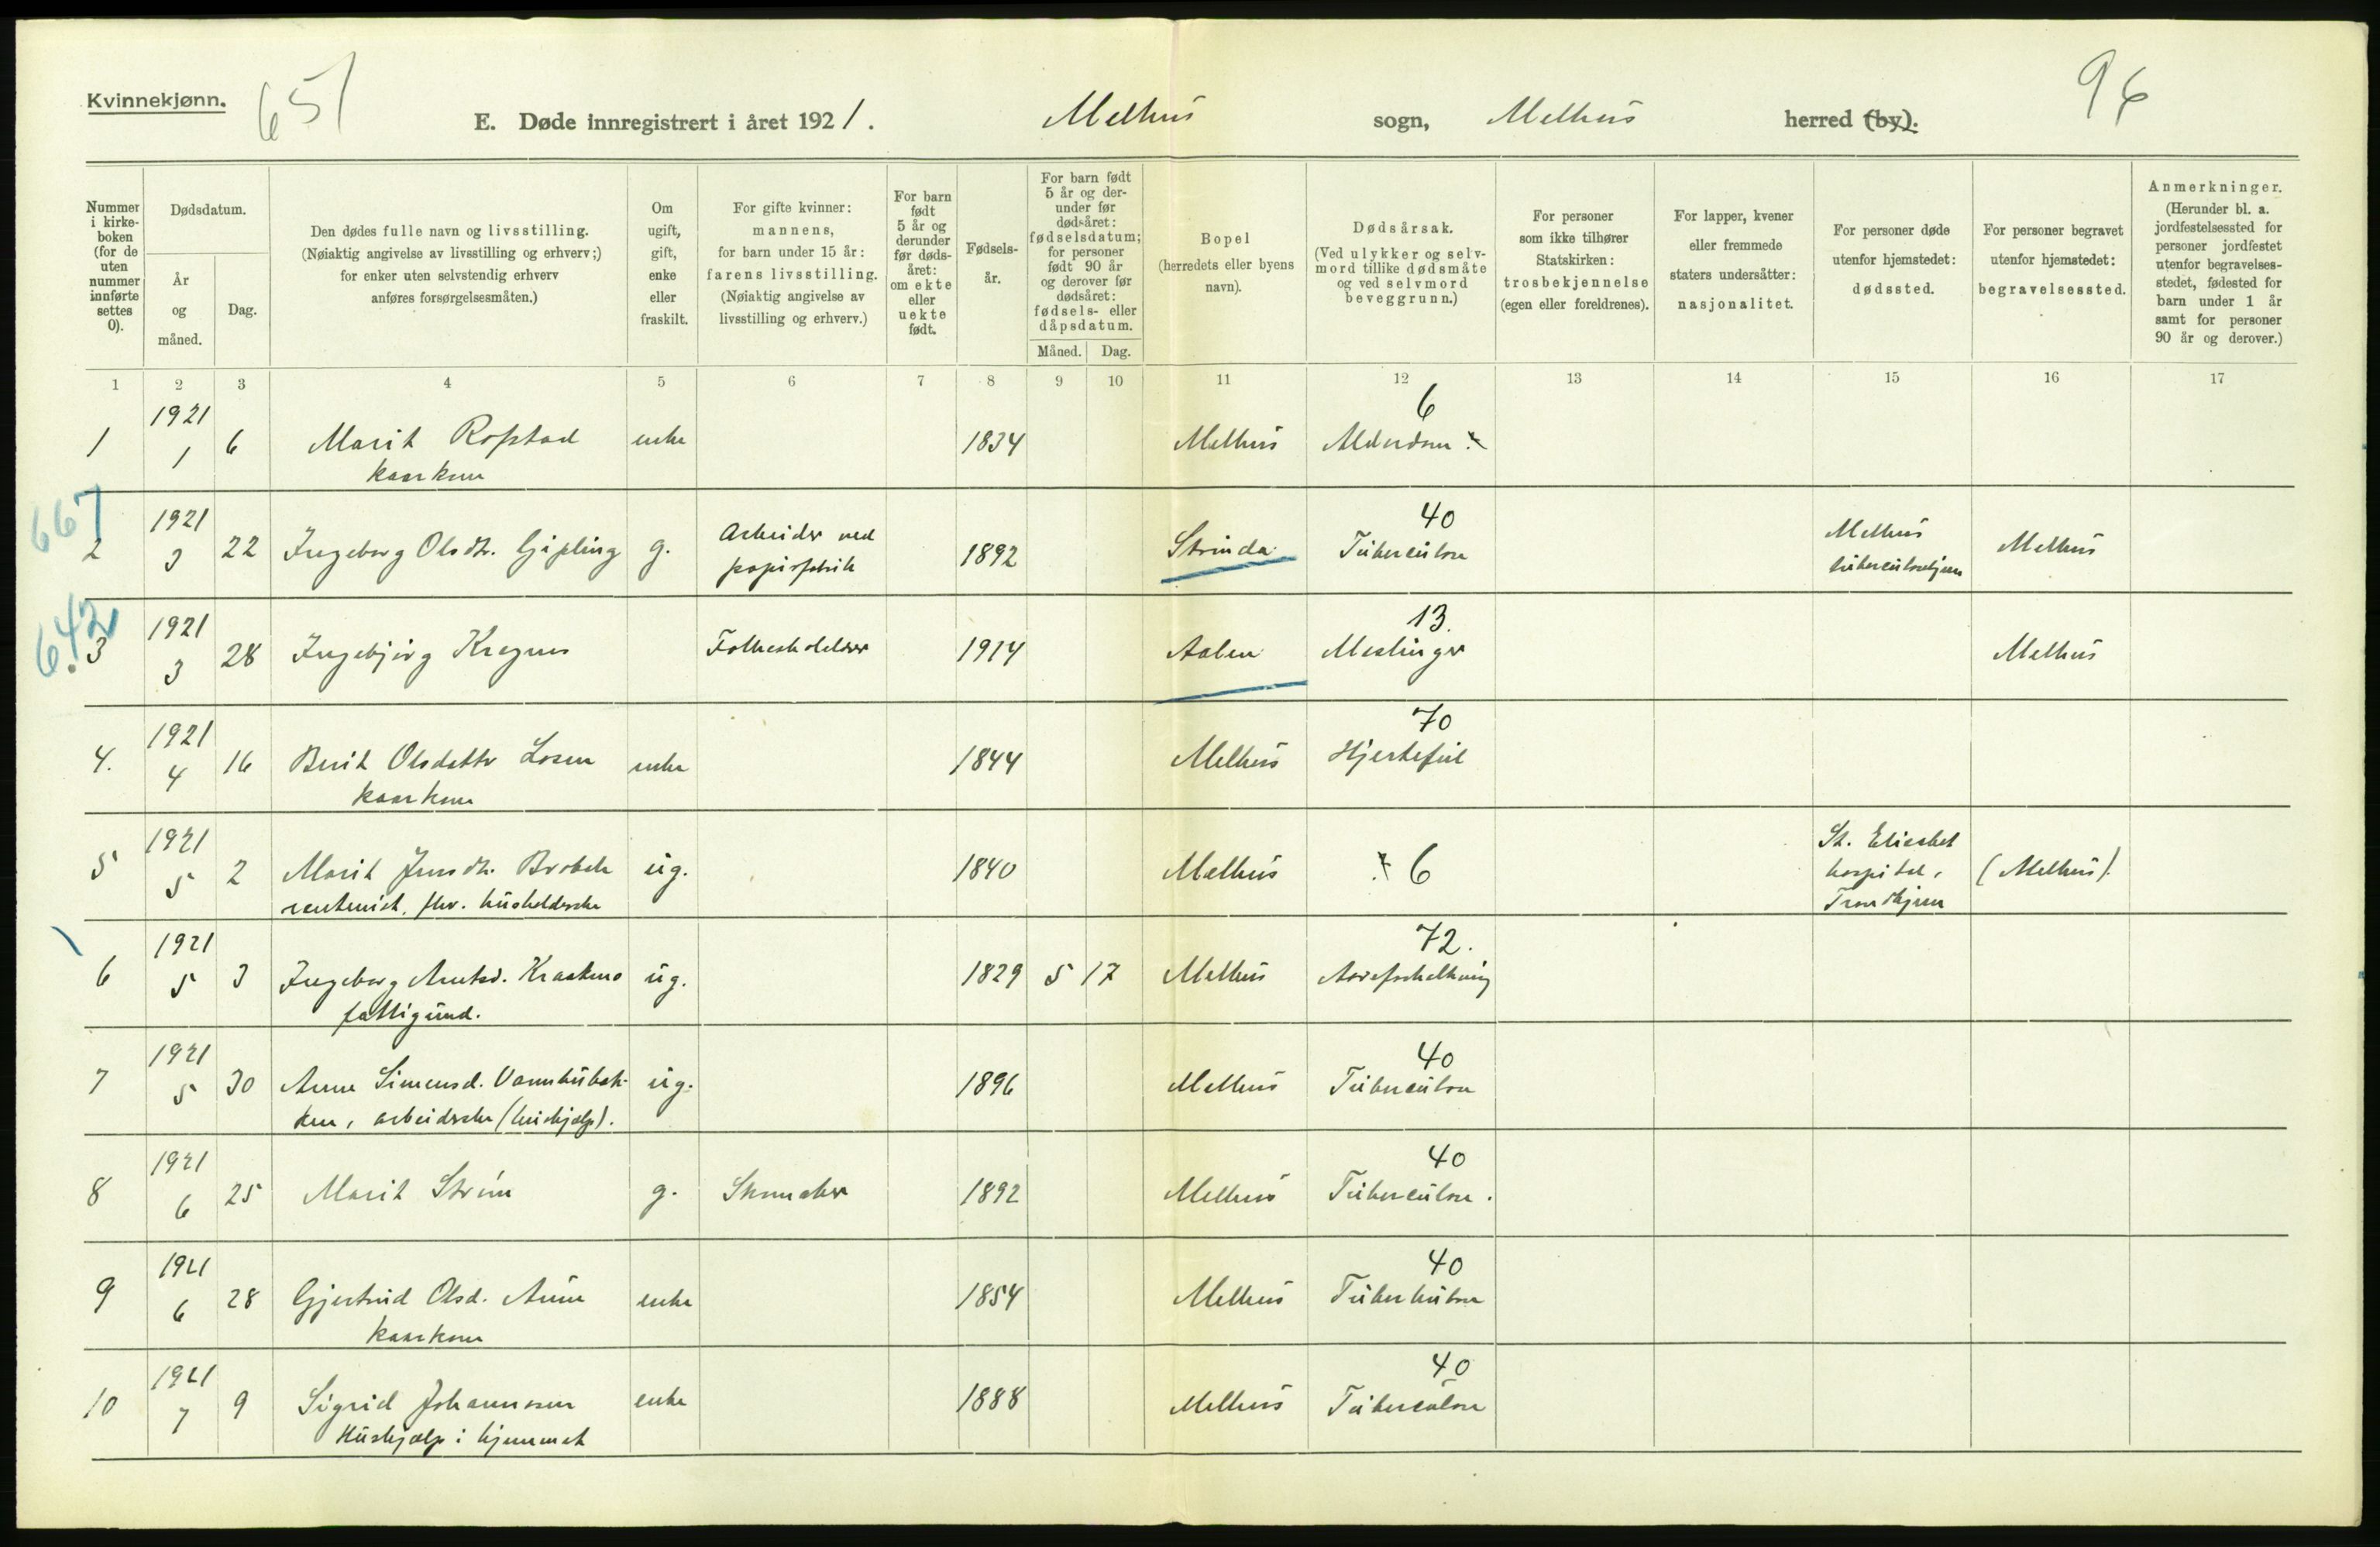 Kvinnekjønn.
651
E. Døde innregistrert i året 1921.
Melhus sogn, Melhus herred (by).
96
Nummer i kirkeboken (for de uten nummer innførte settes 0).
Dødsdatum.
År og måned.
Dag.
Den dødes fulle navn og livsstilling.
(Nøiaktig angivelse av livsstilling og erhverv;)
for enker uten selvstendig erhverv
anføres forsørgelsesmåten.)
Om ugift, gift, enke eller fraskilt.
For gifte kvinner:
mannens,
for barn under 15 år:
farens livsstilling.
(Nøiaktig angivelse av
livsstilling og erhverv.)
For barn født 5 år og derunder før dødsåret: om ekte eller uekte født.
Fødselsår.
For barn født 5 år og derunder før dødsåret: fødselsdatum; for personer født 90 år og derover før dødsåret: fødsels- eller dåpsdatum.
Måned. Dag.
Bopel
(herredets eller byens
navn).
Dødsårsak.
(Ved ulykker og selvmord tillike dødsmåte og ved selvmord beveggrunn.)
For personer
som ikke tilhører
Statskirken:
trosbekjennelse
(egen eller foreldrenes).
For lapper, kvener
eller fremmede
staters undersåtter:
nasjonalitet.
For personer døde
utenfor hjemstedet:
dødssted.
For personer begravet
utenfor hjemstedet:
begravelsessted.
Anmerkninger.
(Herunder bl. a.
jordfestelsessted for
personer jordfestet
utenfor begravelses-
stedet, fødested for
barn under 1 år
samt for personer
90 år og derover.)
1 2 3 4 5 6 7 8 9 10 11 12 13 14 15 16 17
1921 6
1 1 6 Marit Rofstad enke 1834 Melhus Alderdom
kaarkone
667
1921 40
2 3 22 Ingeborg Olsdtr. Gipling g. Arbeider ved papirfabrik 1892 Strinda Tuberculose Melhus tuberculosehjem Melhus
642
1921 13.
3 3 28 Ingebjørg Kregnes 1914 Aalen Meslinger Melhus
1921 70
4. 4 16 Berit Olsdatter Losen enke 1844 Melhus Hjertefeil
kaarkone
1921
5 5 2 Marit Jensdtr. ug. 1840 Melhus 6 St. Eliesbet hospital, Trondhjem (Melhus).
rentenist. fhv. husholderske
1921 72.
6 5 3 Ingeborg ug. 1829 5 17 Melhus
fattigund.
1921 40
7 5 30 Anne Simensd. ug. 1896 Melhus Tuberculose
ken, arbeiderske (hushjælp).
1921 40
8 6 25 Marit Strøm g. Skomaker 1892 Melhus Tuberculose.
1921 40
9 6 28 Gjertrud Olsd. Aune enke 1854 Melhus Tuberkulose
kaarkone
1921 40
10 7 9 Sigrid Johannesen enke 1888 Melhus Tuberculose
Hushjælp i hjemmet